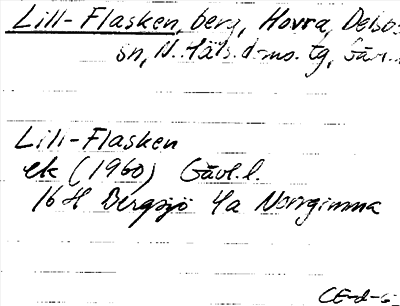 Lill-Flasken, berg, Hovra, Delsbo
sn, N. Häls. dms. tg, Gävl.
Lill-Flasken
ek (1960) Gävl.l.
16H Bergsjö 4a Norrgimma